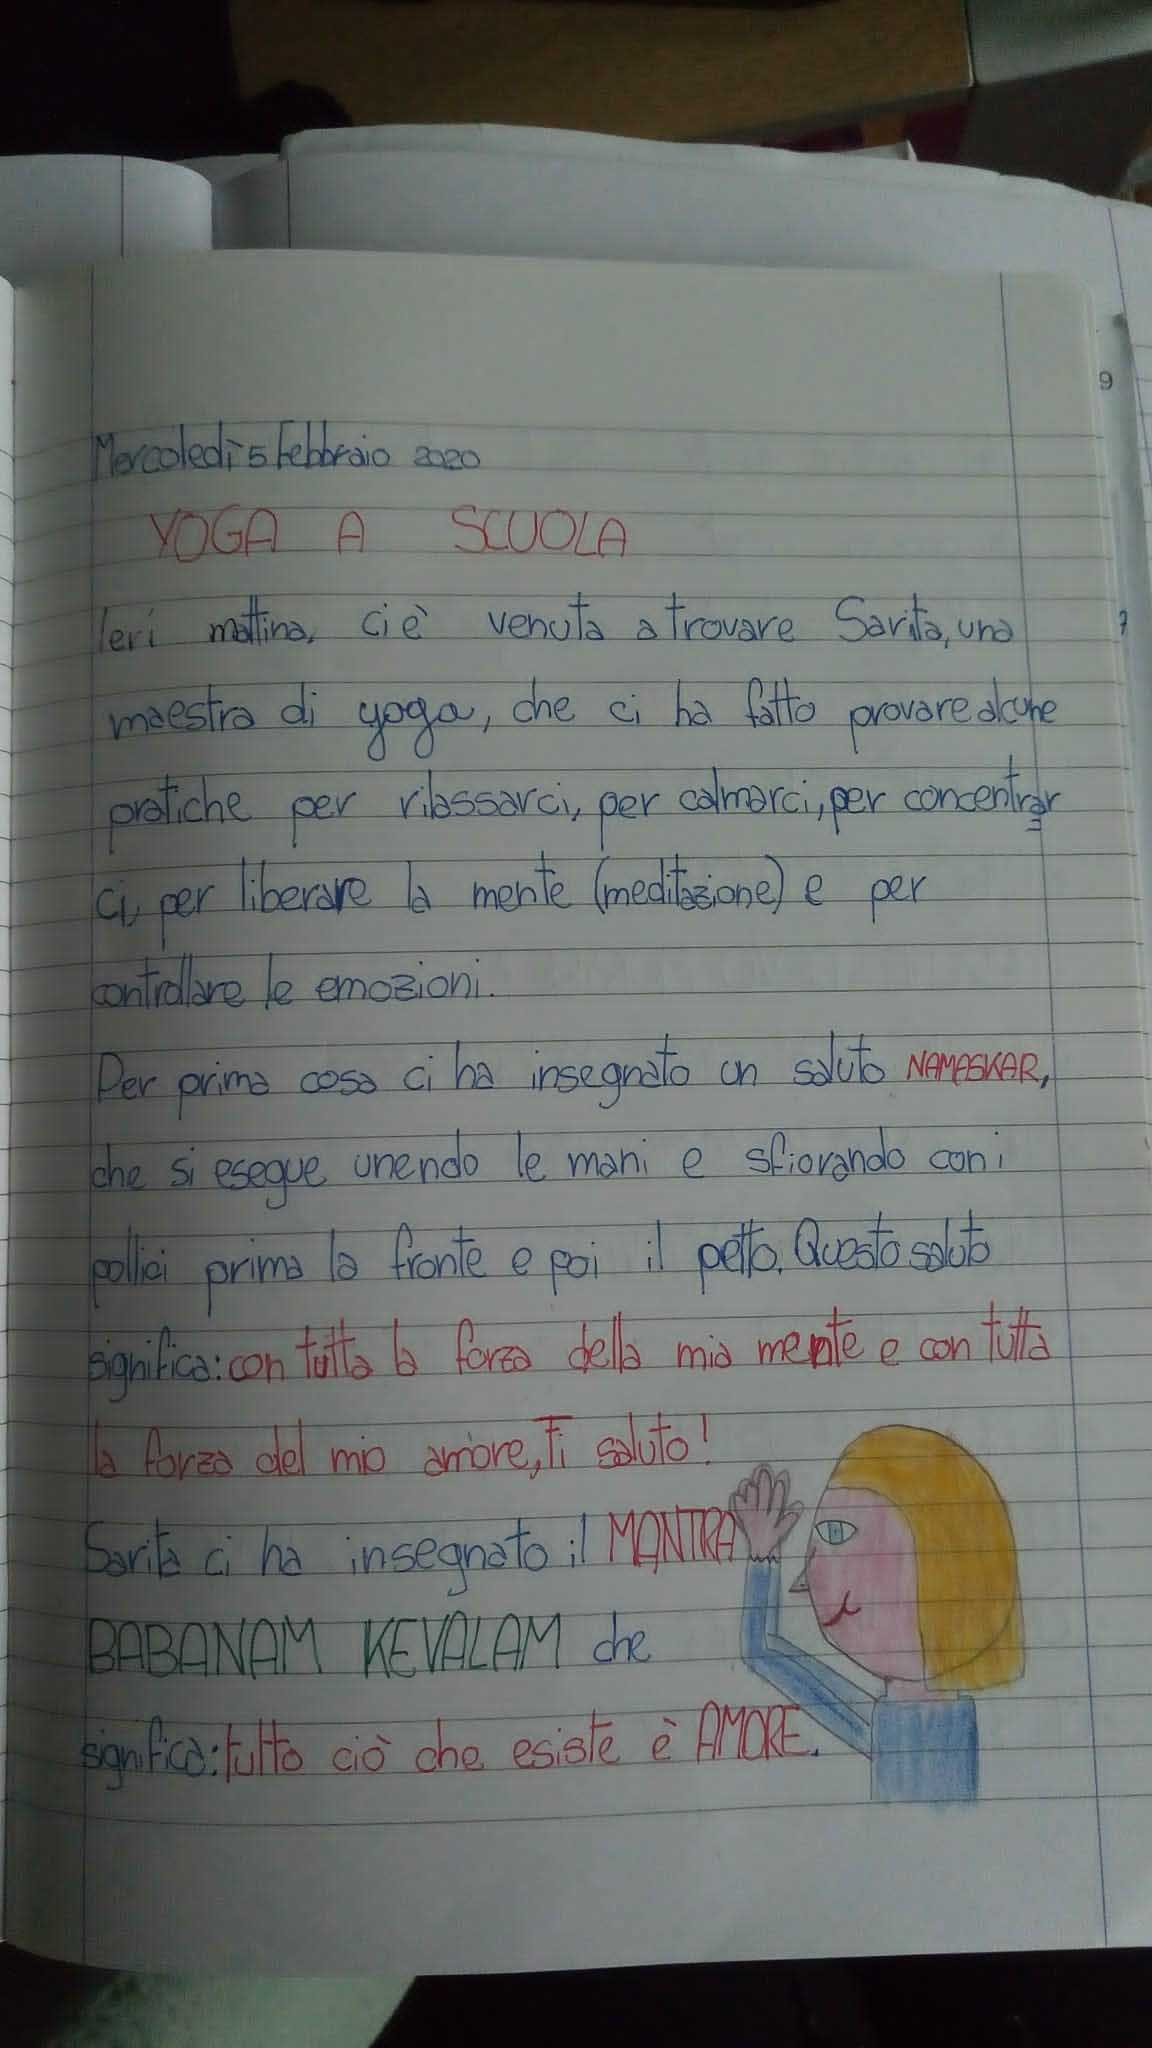 9
Mercoledì 5 Febbraio 2020
YOGA A SCUOLA
Ieri mattina, ci è venuta a trovare Sarita, una
maestra di yoga, che ci ha fatto provare alcune
pratiche per rilassarci, per calmarci, per concentrar=
ci, per liberare la mente (meditazione) e per
controllare le emozioni.
Per prima cosa ci ha insegnato un saluto NAMASKAR,
che si esegue unendo le mani e sfiorando con i
pollici prima la fronte e poi il petto. Questo saluto
significa: con tutta la forza della mia mente e con tutta
la forza del mio amore, Ti saluto!
Sarita ci ha insegnato il MANTRA
BABANAM KEVALAM che
significa: tutto ciò che esiste è AMORE.